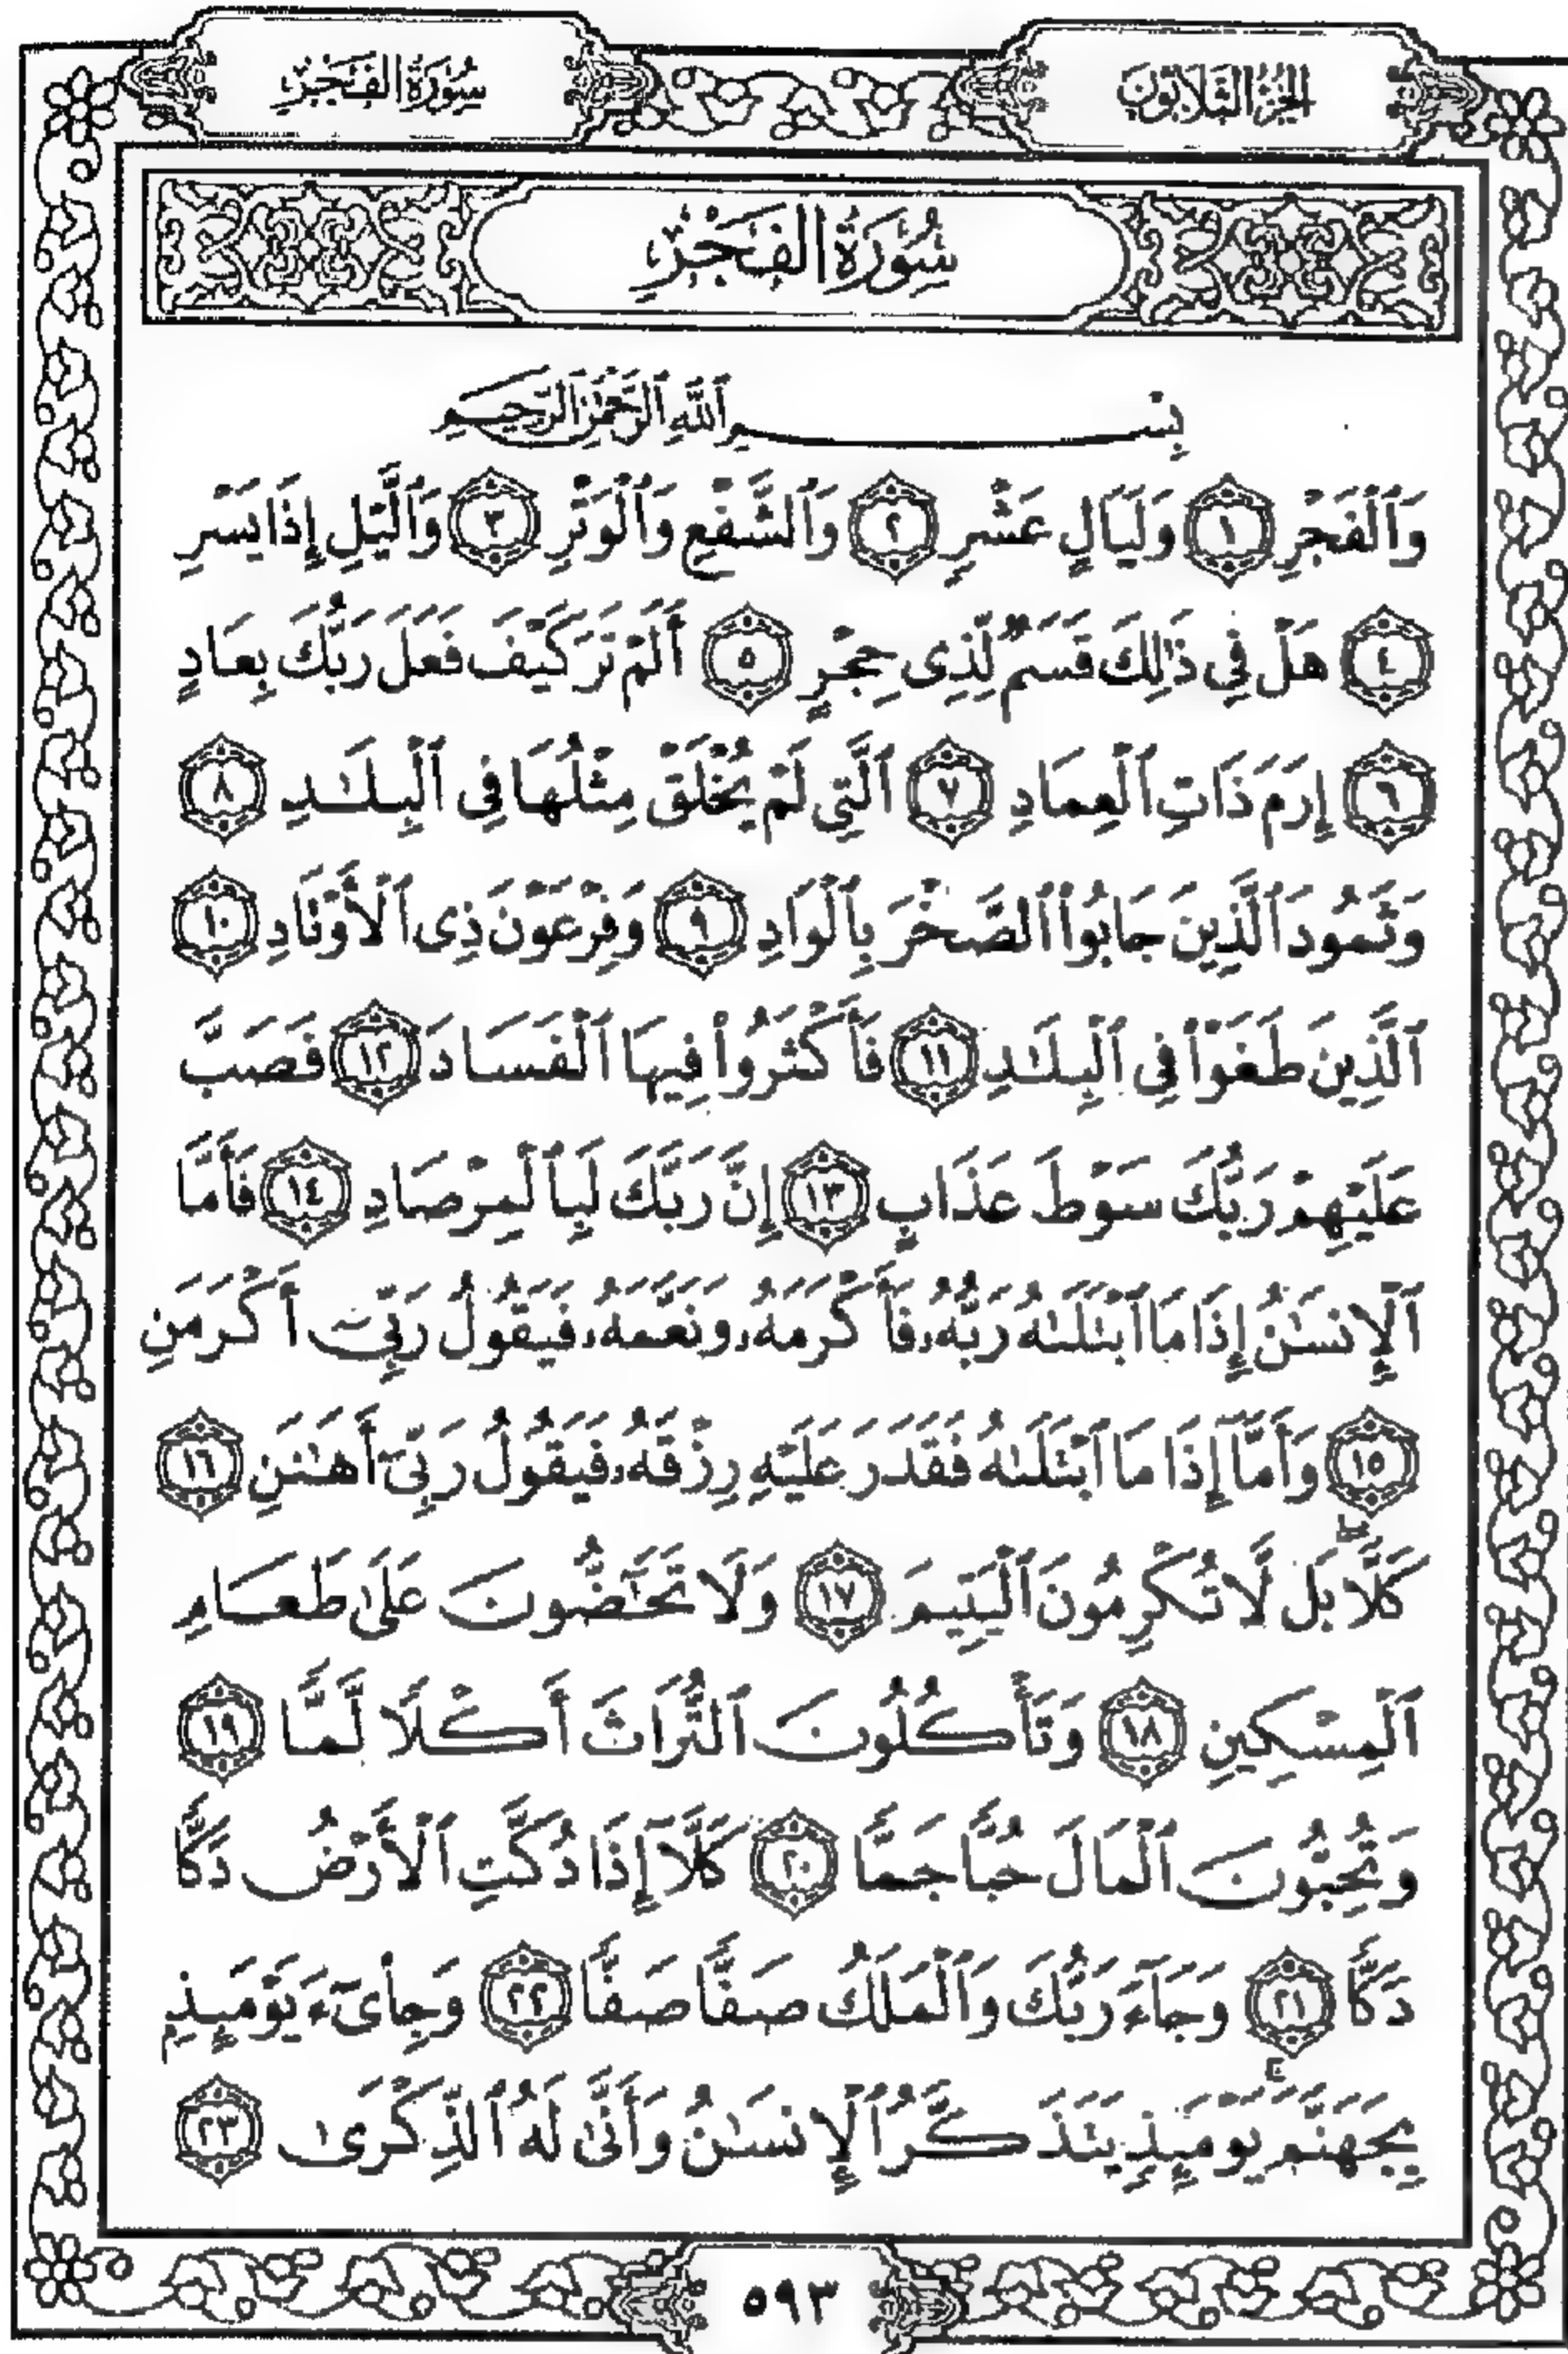 الجزء الثلاثون
سورة الفجر
سُورَةُ الفَجْرِ
بِسْمِ ٱللَّهِ ٱلرَّحْمَٰنِ ٱلرَّحِيمِ
وَٱلْفَجْرِ ١ وَلَيَالٍ عَشْرٍ ٢ وَٱلشَّفْعِ وَٱلْوَتْرِ ٣ وَٱلَّيْلِ إِذَا يَسْرِ
٤ هَلْ فِي ذَٰلِكَ قَسَمٌ لِّذِي حِجْرٍ ٥ أَلَمْ تَرَ كَيْفَ فَعَلَ رَبُّكَ بِعَادٍ
٦ إِرَمَ ذَاتِ ٱلْعِمَادِ ٧ ٱلَّتِي لَمْ يُخْلَقْ مِثْلُهَا فِي ٱلْبِلَٰدِ ٨
وَثَمُودَ ٱلَّذِينَ جَابُوا۟ ٱلصَّخْرَ بِٱلْوَادِ ٩ وَفِرْعَوْنَ ذِي ٱلْأَوْتَادِ ١٠
ٱلَّذِينَ طَغَوْا۟ فِي ٱلْبِلَٰدِ ١١ فَأَكْثَرُوا۟ فِيهَا ٱلْفَسَادَ ١٢ فَصَبَّ
عَلَيْهِمْ رَبُّكَ سَوْطَ عَذَابٍ ١٣ إِنَّ رَبَّكَ لَبِٱلْمِرْصَادِ ١٤ فَأَمَّا
ٱلْإِنسَٰنُ إِذَا مَا ٱبْتَلَىٰهُ رَبُّهُۥ فَأَكْرَمَهُۥ وَنَعَّمَهُۥ فَيَقُولُ رَبِّيٓ أَكْرَمَنِ
١٥ وَأَمَّآ إِذَا مَا ٱبْتَلَىٰهُ فَقَدَرَ عَلَيْهِ رِزْقَهُۥ فَيَقُولُ رَبِّيٓ أَهَٰنَنِ ١٦
كَلَّا ۖ بَل لَّا تُكْرِمُونَ ٱلْيَتِيمَ ١٧ وَلَا تَحَٰٓضُّونَ عَلَىٰ طَعَامِ
ٱلْمِسْكِينِ ١٨ وَتَأْكُلُونَ ٱلتُّرَاثَ أَكْلًا لَّمًّا ١٩
وَتُحِبُّونَ ٱلْمَالَ حُبًّا جَمًّا ٢٠ كَلَّآ إِذَا دُكَّتِ ٱلْأَرْضُ دَكًّا
دَكًّا ٢١ وَجَآءَ رَبُّكَ وَٱلْمَلَكُ صَفًّا صَفًّا ٢٢ وَجِا۟يٓءَ يَوْمَئِذٍۭ
بِجَهَنَّمَ ۚ يَوْمَئِذٍ يَتَذَكَّرُ ٱلْإِنسَٰنُ وَأَنَّىٰ لَهُ ٱلذِّكْرَىٰ ٢٣
٥٩٣